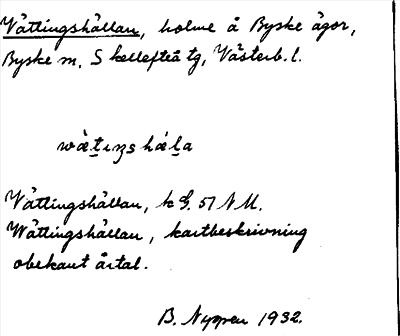 Vättingshällan, holme å Byske ägor,
Byske sn, Skellefteå tg, Västerb. l.
wä̀tıŋshäla
Vättingshällan, k G. 51 N M.
Wättingshällan, kartbeskrivning
obekant årtal.
B. Nygren 1932.